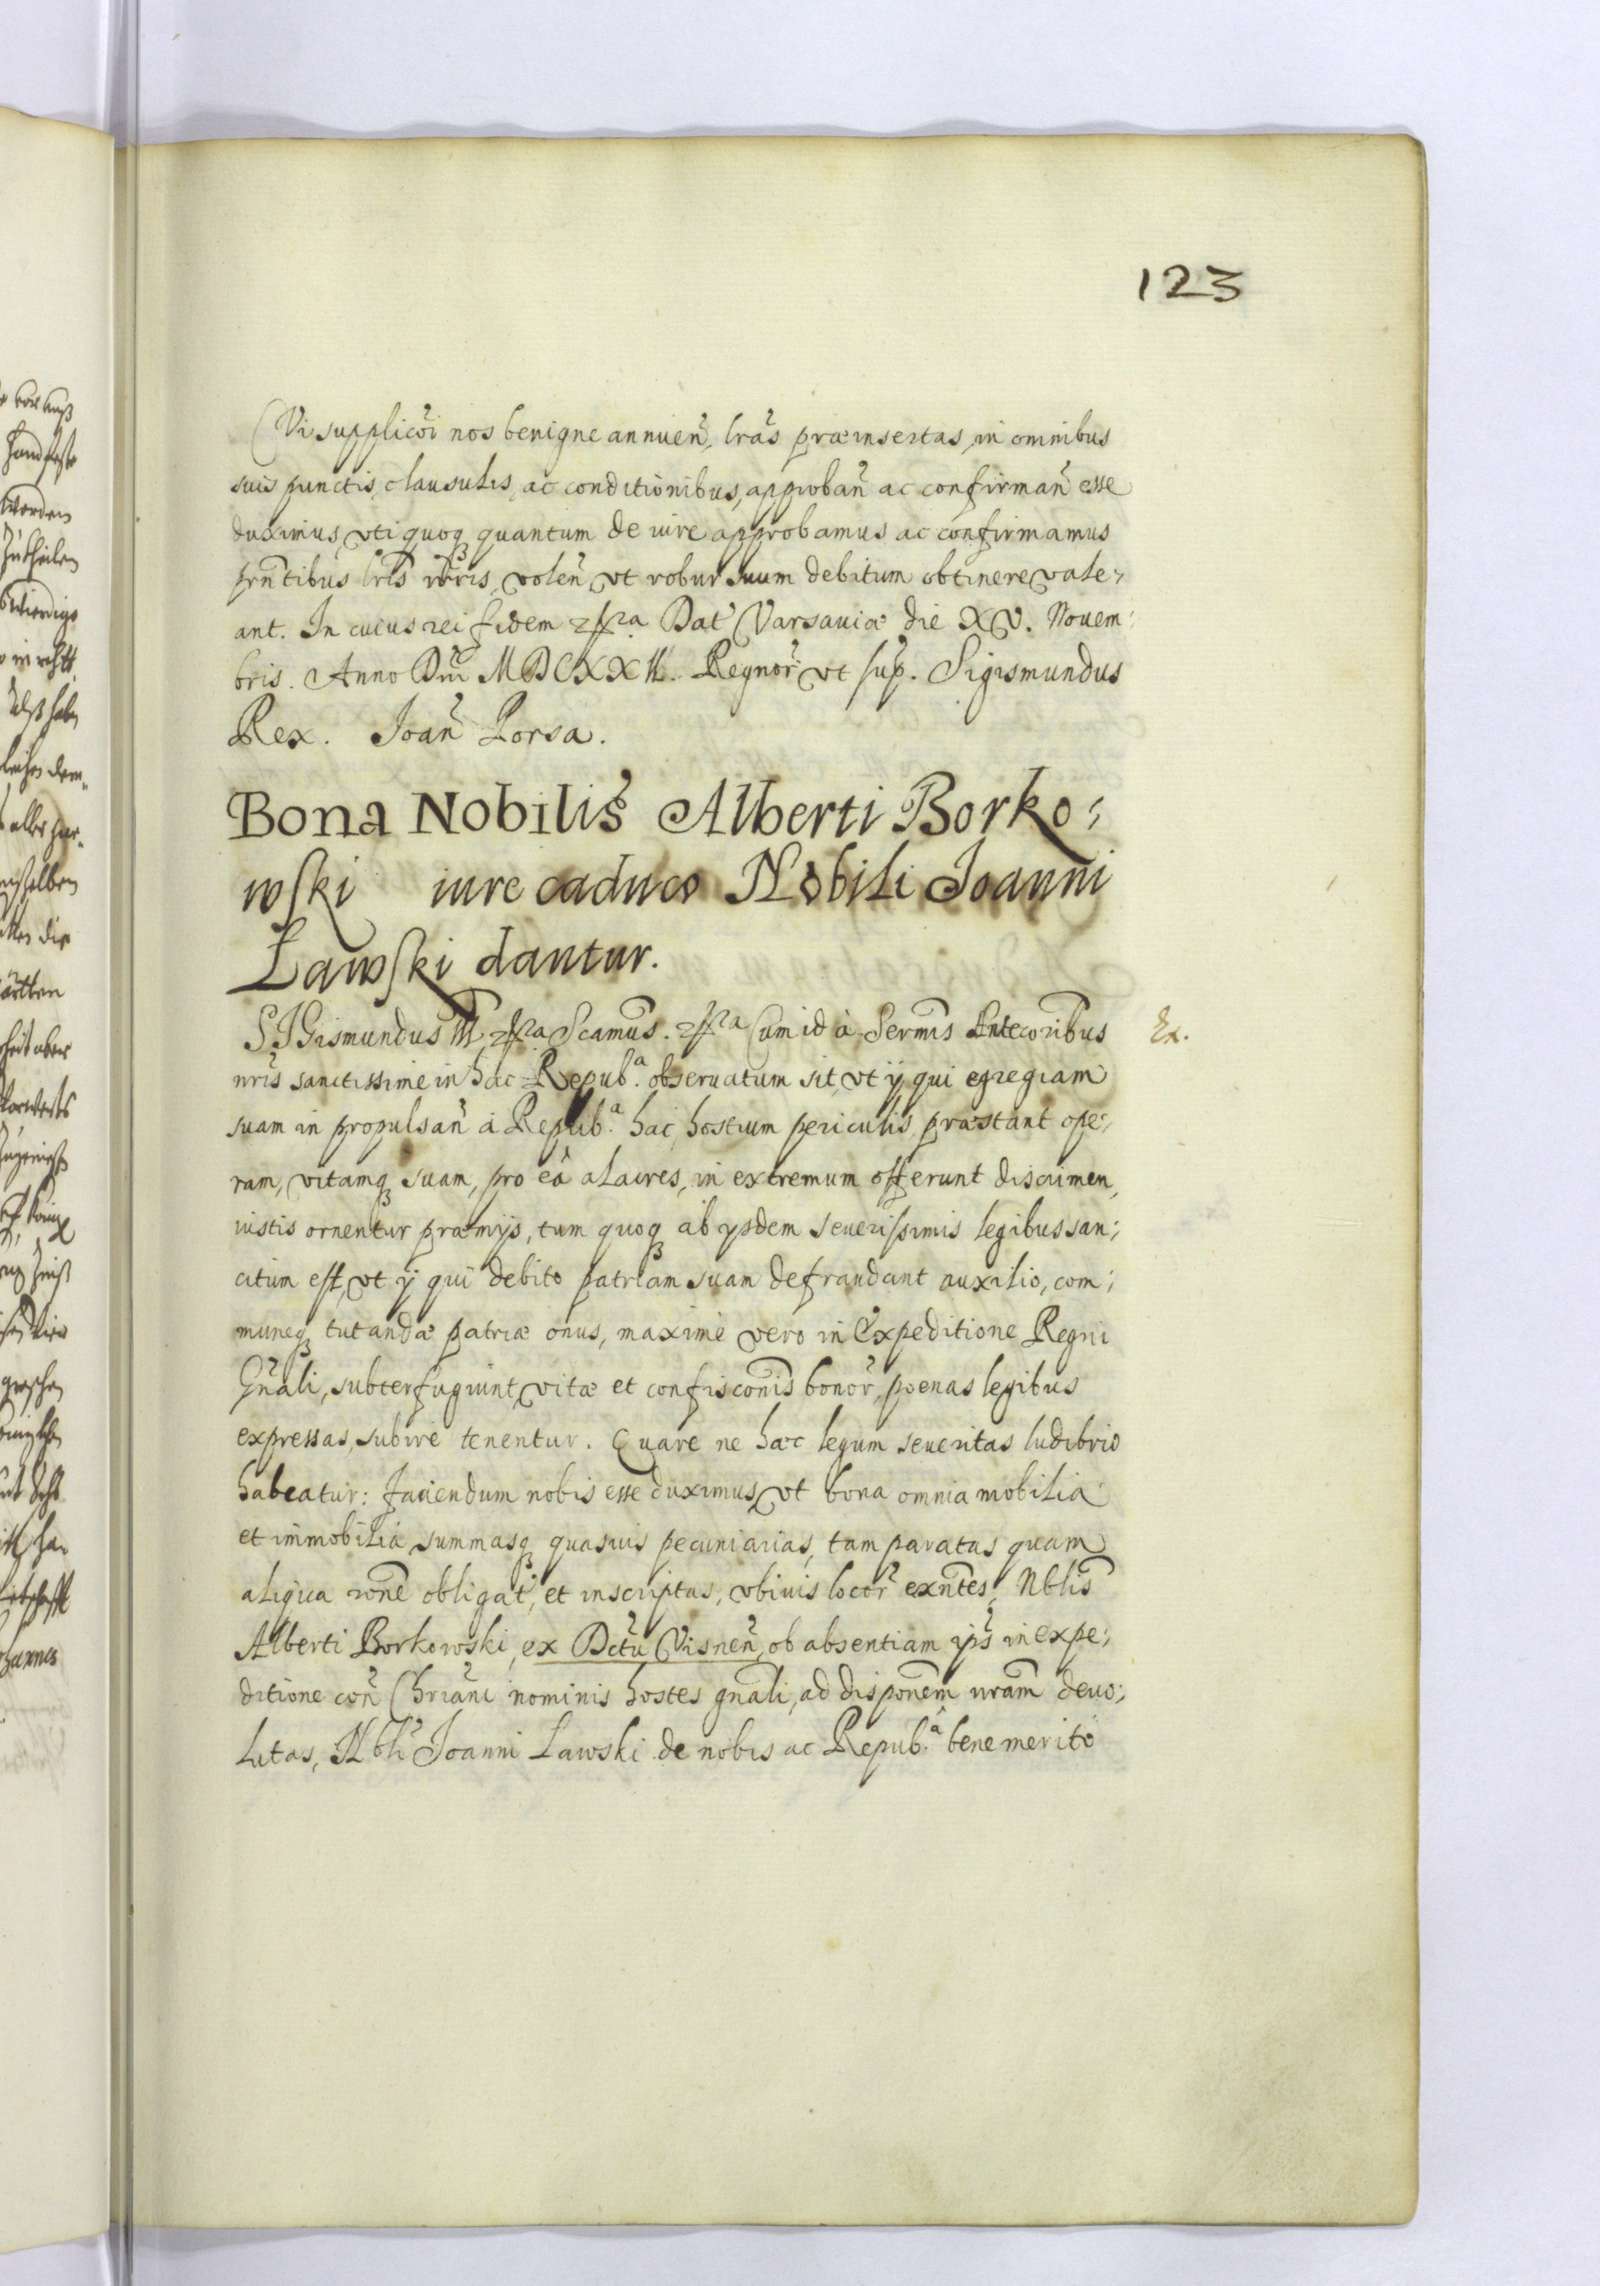 123
Cui supplicõi nos benigne annueñ, lrãs præinsertas, in omnibus
suis punctis, clausulis, ac conditionibus, approbañ ac confirmañ esse
duximus, vti quoqꝫ quantum de iure approbamus ac confirmamus
prñtibus lris nr̃is, voleñ vt robur suum debitum obtinere vale:
ant. In cuius rei fidem Dat Varsauiæ die XV. Nouem:
bris. Anno Dñi MDCXXII. Regnor̃ vt sup̃. Sigismundus
Rex. Joañ Lorsa.
Bona Nobilis̃ Alberti Borko:
wski iure caduco Nobili Joanni
Lawski dantur.
SIGismundus III Scamus̃. Cum id à Serm̃is Antecoribus̃
nr̃is sanctissime in hac Repub.ᵃ obseruatum sit, vt ij qui egregiam
suam in propulsañ à Repub.ᵃ hac, hostium periculis, præstant ope:
ram, vitamqꝫ suam, pro eâ alacres, in extremum offerunt discrimen,
iustis ornentur præmijs, tum quoqꝫ ab ijsdem seuerissimis legibus san:
citum est, vt ij qui debito patriam suam defraudant auxilio, com:
muneqꝫ tutandæ patriæ onus, maximè vero in Expeditione Regni
Gñali, subterfugiunt, vitæ et confiscoñis bonor̃, poenas legibus
expressas, subire tenentur. Quare ne hæc legum seueritas ludibrio
habeatur: faciendum nobis esse duximus, vt bona omnia mobilia
et immobilia, summasqꝫ quasuis pecuniarias, tam paratas quam
aliqua roñe obligat, et inscriptas, vbiuis locor̃ exñtes, Nblis̃
Alberti Borkowski, ex Dctũ Visneñ, ob absentiam ips̃ in expe:
ditione coñ Chriañi nominis hostes gñali, ad disponem̃ nram̃ deuo:
lutas, Nbli Joanni Lawski de nobis ac Repub.ᵃ bene merito
Ex.